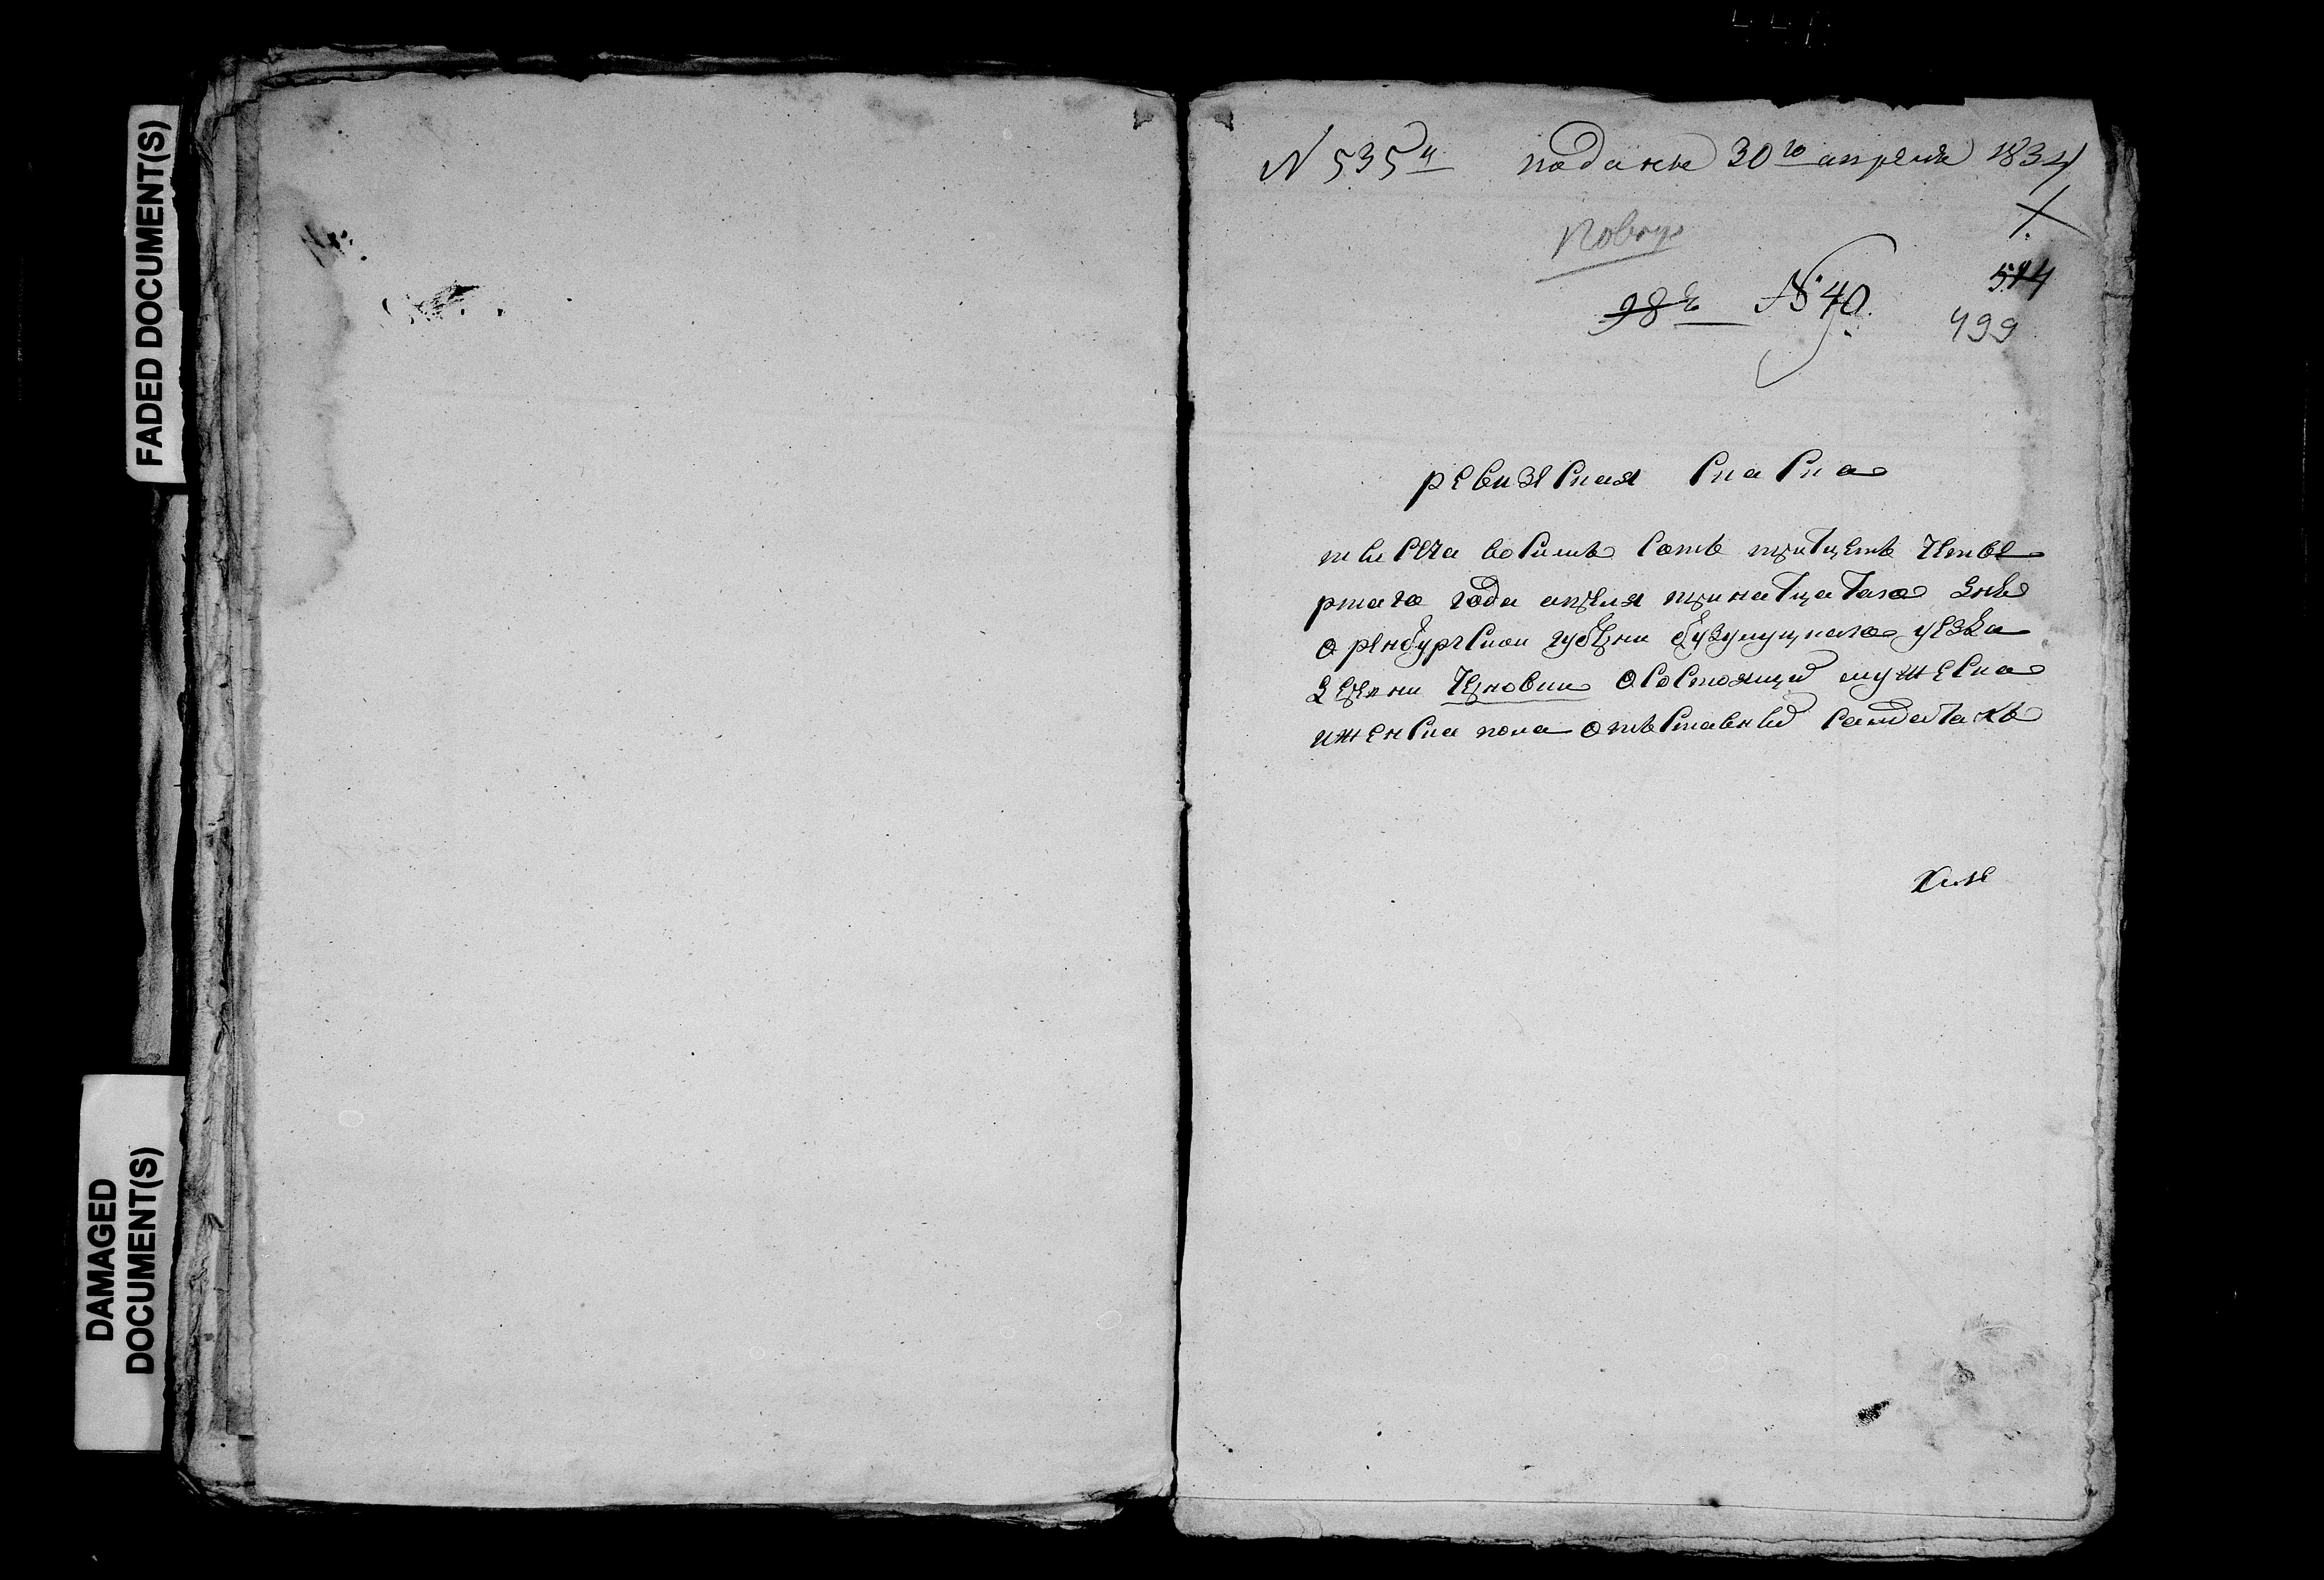 FADED DOCUMENT(S)
DAMAGED
DOCUMENT(S)
N 535й поданы 30го апреля 1834
514
98й № 40.
499
ревизская скаска
тысеча восимь соть тритцеть четве
ртаго года апреля тринатцатаго дня
оренбургской губерни бузулуцкаго уезда
деревни черновки осостоящий мужеска
иженска пола отъставный салдатахъ